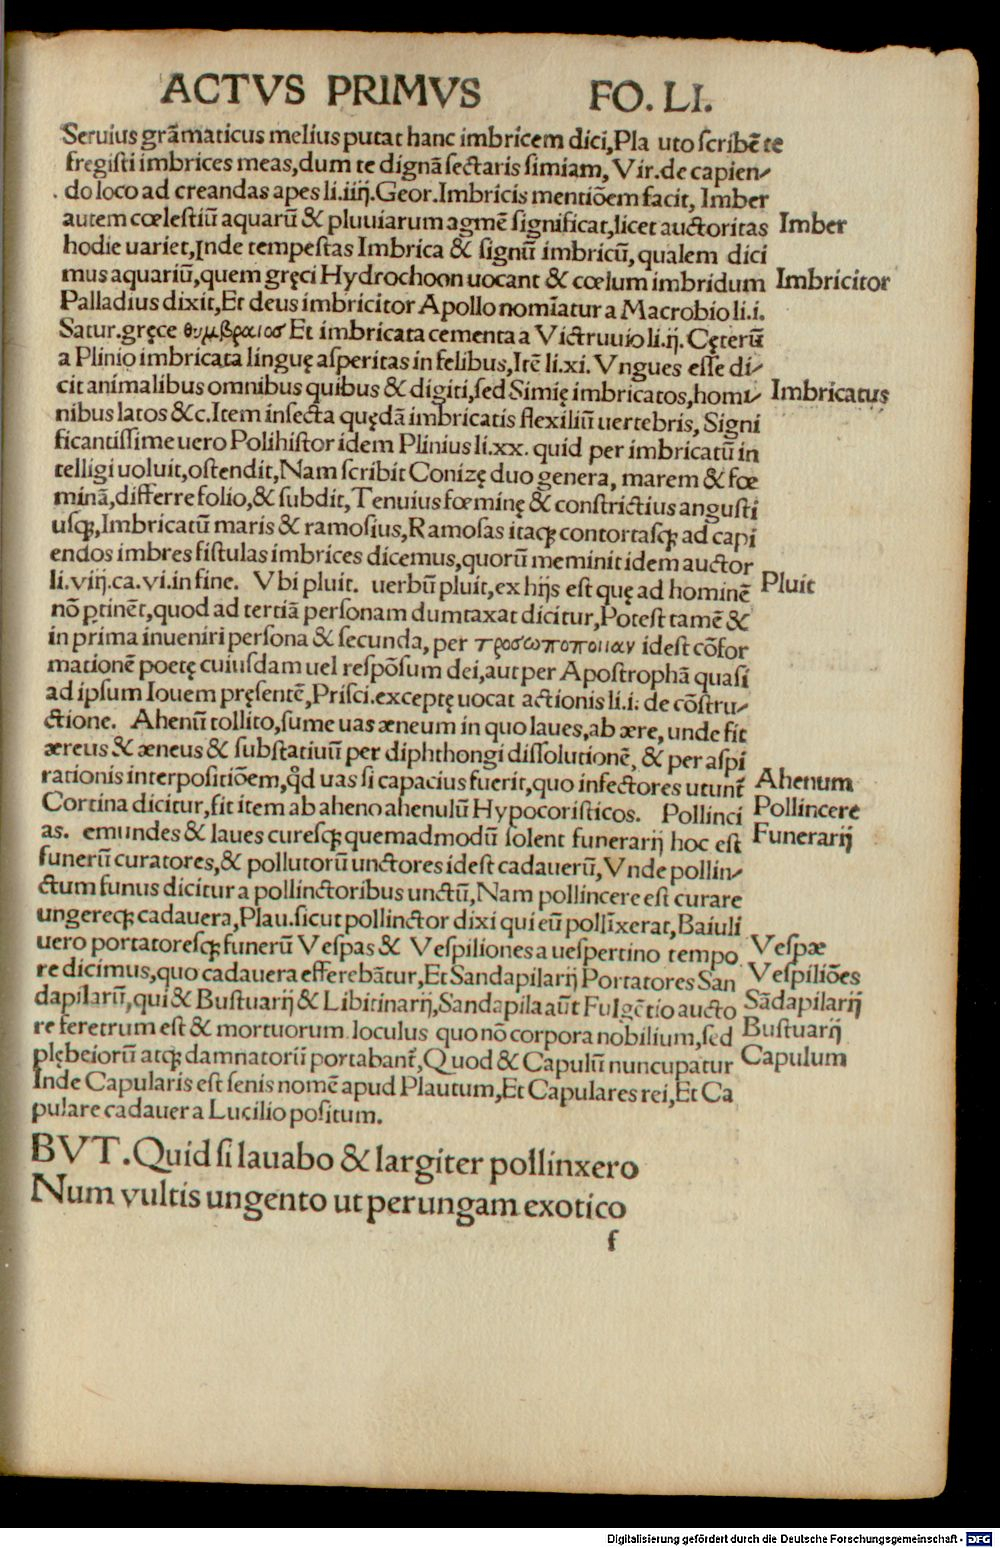 ACTVS PRIMVS FO. LI.
Seruius grãmaticus melius putat hanc imbricem dici,Pla uto scribẽte
fregisti imbrices meas,dum te dignã sectaris simiam, Vir.de capien⸗
do loco ad creandas apes li.iiij.Geor.Imbricis mentiõem facit, Imber
autem cœlestiũ aquarũ & pluuiarum agmẽ significat,licet auctoritas Imber
hodie uariet,Inde tempestas Imbrica & signũ imbricũ, qualem dici
mus aquariũ,quem gręci Hydrochoon uocant & cœlum imbridum Imbricitor
Palladius dixit,Et deus imbricitor Apollo nomĩatur a Macrobio li.i.
Satur.gręce θυμβραιοσ Et imbricata cementa a Victruuio li.ij. Cęterũ
a Plinio imbricata linguę asperitas in felibus,Itẽ li.xi. Vngues esse di⸗
cit animalibus omnibus quibus & digiti,sed Simię imbricatos,homi⸗ Imbricatus
nibus latos &c.Item insecta quędã imbricatis flexiliũ uertebris, Signi
ficantissime uero Polihistor idem Plinius li.xx. quid per imbricatũ in
telligi uoluit,ostendit,Nam scribit Conizę duo genera, marem & fœ
minã,differre folio,& subdit,Tenuius fœminę & constrictius angusti
usq;,Imbricatũ maris & ramosius,Ramosas itaq; contortasq; ad capi
endos imbres fistulas imbrices dicemus,quorũ meminit idem auctor
li.viij.ca.vi.in fine. Vbi pluit. uerbũ pluit,ex hijs est quę ad hominẽ Pluit
nõ ꝑtinẽt,quod ad tertiã personam dumtaxat dicitur,Potest tamẽ &
in prima inueniri persona & secunda, per προσωποποιιαν idest cõfor
mationẽ poetę cuiusdam uel respõsum dei,aut per Apostrophã quasi
ad ipsum Iouem pręsentẽ,Prisci.exceptę uocat actionis li.i. de cõstru⸗
ctione. Ahenũ tollito,sume uas æneum in quo laues,ab ære, unde fit
æreus & æneus & substatiuũ per diphthongi dissolutionẽ, & per aspi
rationis interpositiõem,q̃d uas si capacius fuerit,quo infectores utunt᷑ Ahenum
Cortina dicitur,fit item ab aheno ahenulũ Hypocoristicos. Pollinci Pollincere
as. emundes & laues curesq; quemadmodũ solent funerarij hoc est Funerarij
funerũ curatores,& pollutorũ unctores idest cadauerũ, Vnde pollin⸗
ctum funus dicitur a pollinctoribus unctũ,Nam pollincere est curare
ungereq; cadauera,Plau.sicut pollinctor dixi qui eũ pollĩxerat,Baiuli
uero portatoresq; funerũ Vespas & Vespiliones a uespertino tempo Vespæ
re dicimus,quo cadauera efferebãtur,Et Sandapilarij Portatores San Vespiliões
dapilarũ,qui & Bustuarij & Libitinarij,Sandapila aũt Fulgẽtio aucto Sãdapilarij
re feretrum est & mortuorum loculus quo nõ corpora nobilium,sed Bustuarij
plębeiorũ atq; damnatorũ portabant᷑,Quod & Capulũ nuncupatur Capulum
Inde Capularis est senis nomẽ apud Plautum,Et Capulares rei,Et Ca
pulare cadauer a Lucilio positum.
BVT.Quid si lauabo & largiter pollinxero
Num vultis ungento ut perungam exotico
f
Digitalisierung gefördert durch die Deutsche Forschungsgemeinschaft - DFG